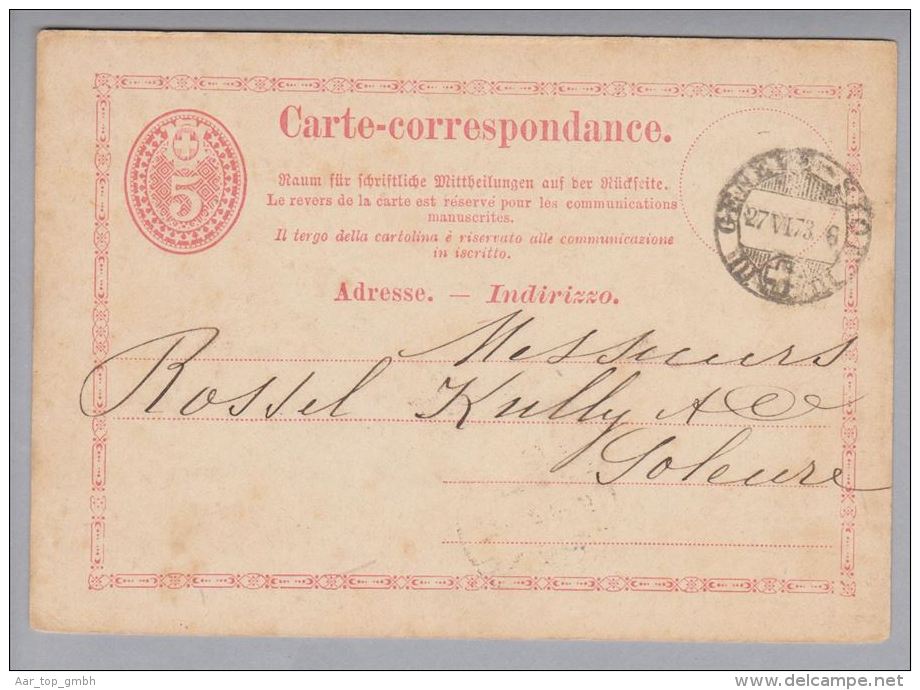 Carte-correspondance.
5
Raum für schriftliche Mittheilungen auf der Rückseite.
Le revers de la carte est réservé pour les communications
manuscrites.
Il tergo della cartolina è riservato alle communicazione
in iscritto.
27 VI.73 6
Adresse. — Indirizzo.
Messieurs
Rossel Kully & Co
Soleure
Aar_top_gmbh
www.delcampe.net